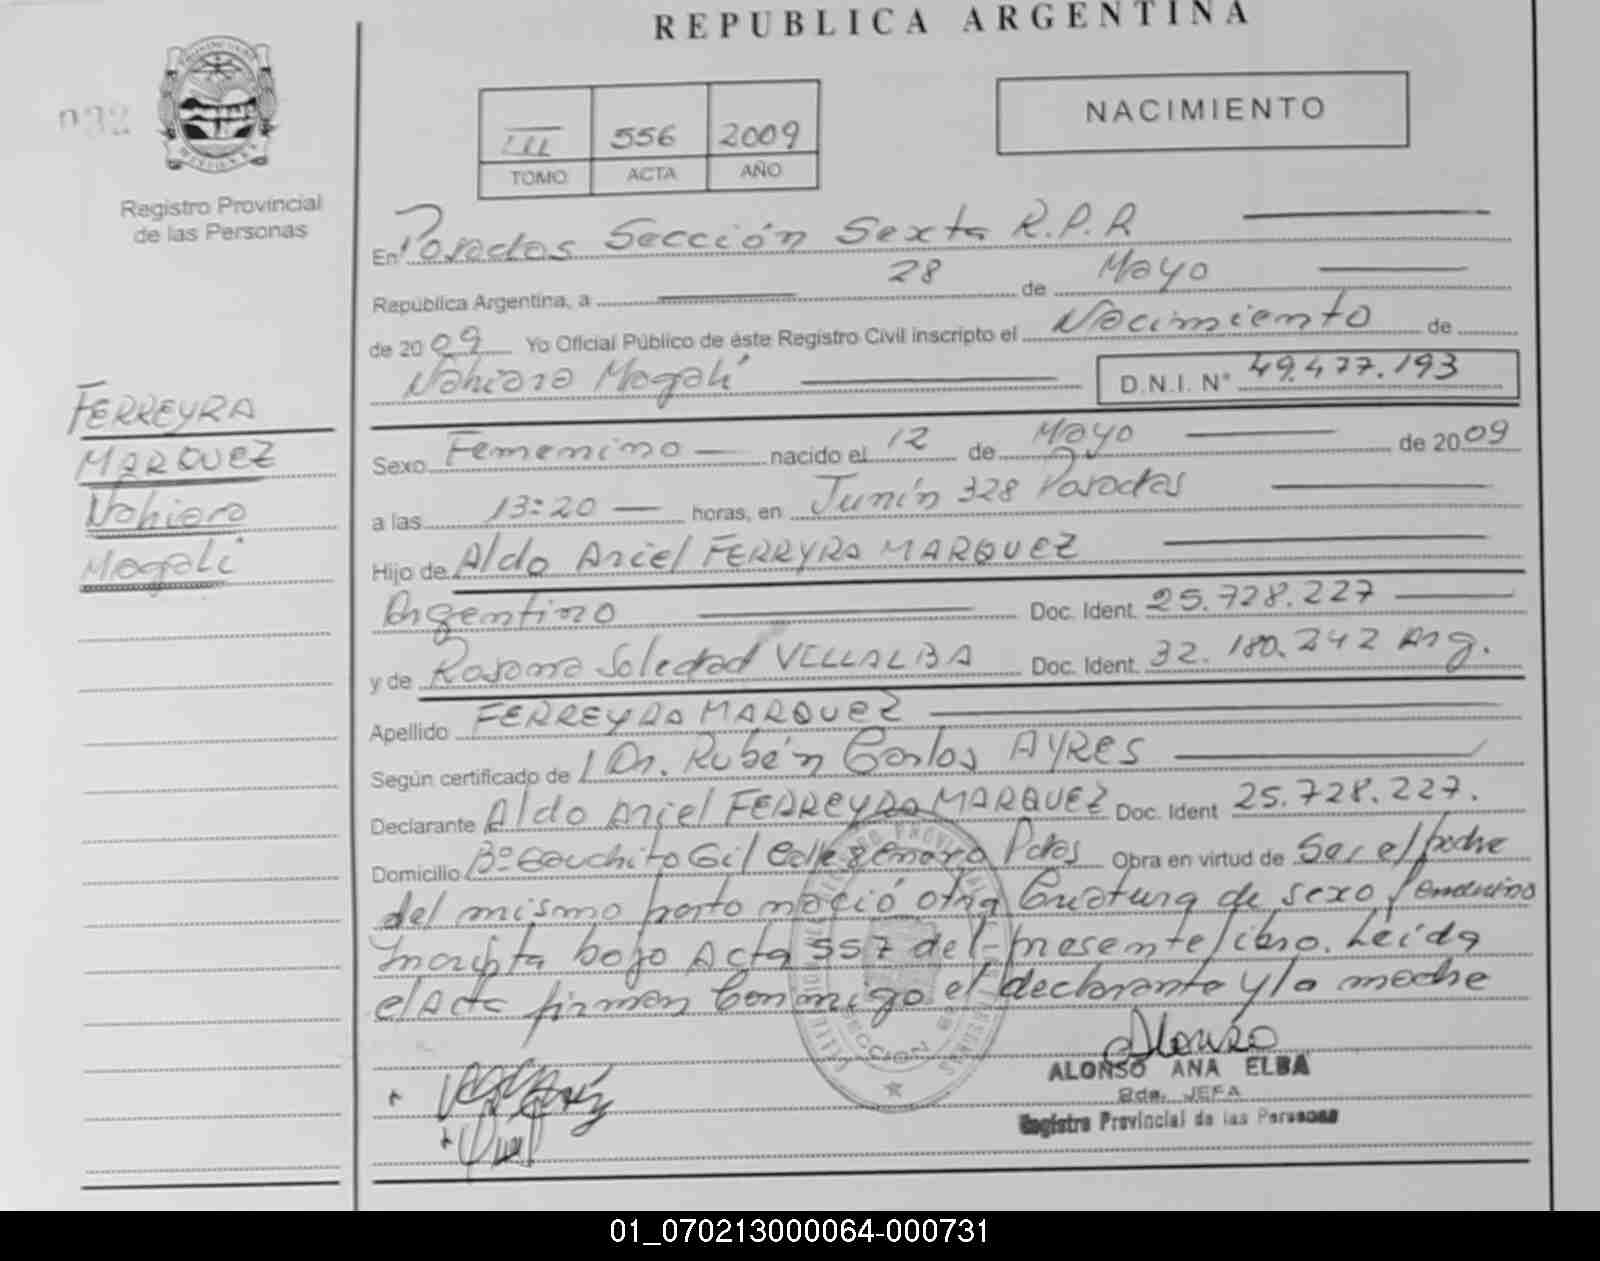 REPUBLICA ARGENTINA
MISIONES
Registro Provincial
de las Personas
III 556 2009
TOMO ACTA AÑO
NACIMIENTO
En Posadas Sección Sexta R.P.P.
República Argentina, a 28 de Mayo
de 2009 Yo Oficial Público de éste Registro Civil inscripto el Nacimiento de
Nahiara Magalí D.N.I. N° 49.477.193
FERREYRA
MARQUEZ
Nahiara
Magali
Sexo Femenino nacido el 12 de Mayo de 2009
a las 13:20 horas, en Junín 328 Posadas
Hijo de Aldo Ariel FERREYRA MARQUEZ
Argentino Doc. Ident. 25.728.227
y de Soledad VILLALBA Doc. Ident. 32.180.242 Arg.
Apellido FERREYRA MARQUEZ
Según certificado de Dr. Rubén Carlos AYRES
Declarante Aldo Ariel FERREYRA MARQUEZ Doc. Ident 25.728.227.
Domicilio B° Gauchito Gil Calle Pdas Obra en virtud de Ser el padre
del mismo parto nació otra Criatura de sexo femenino
Inscripta bajo Acta 557 del presente libro. Leída
el Acta firman Conmigo el declarante y la madre
Alonso
ALONSO ANA ELBA
2da. JEFA
Registro Provincial de las Personas
01_070213000064-000731